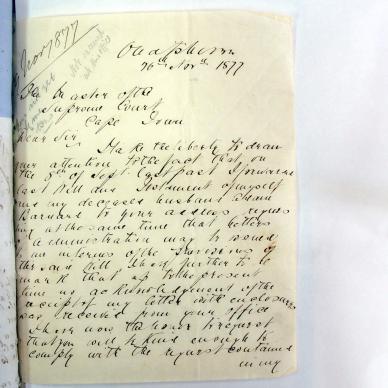 Nov 1877
26th Novr 1877
The Master of the
Supreme Court
Cape Town
Dear Sir,
I take the liberty to draw
your attention to the fact that on
the 5th of Sept. last past I forwarded
last Will and Testament of myself
and my deceased husband
Barnard to your address request
ing at the same time that letters
of administration may be issued
to me in terms of the provisions of
the said Will. I beg further to re
mark that up to the present
time no acknowledgement of the
receipt of my letter with enclosures
was received from your office
I have now the honor to request
that you will be kind enough to
comply with the request contained
in my